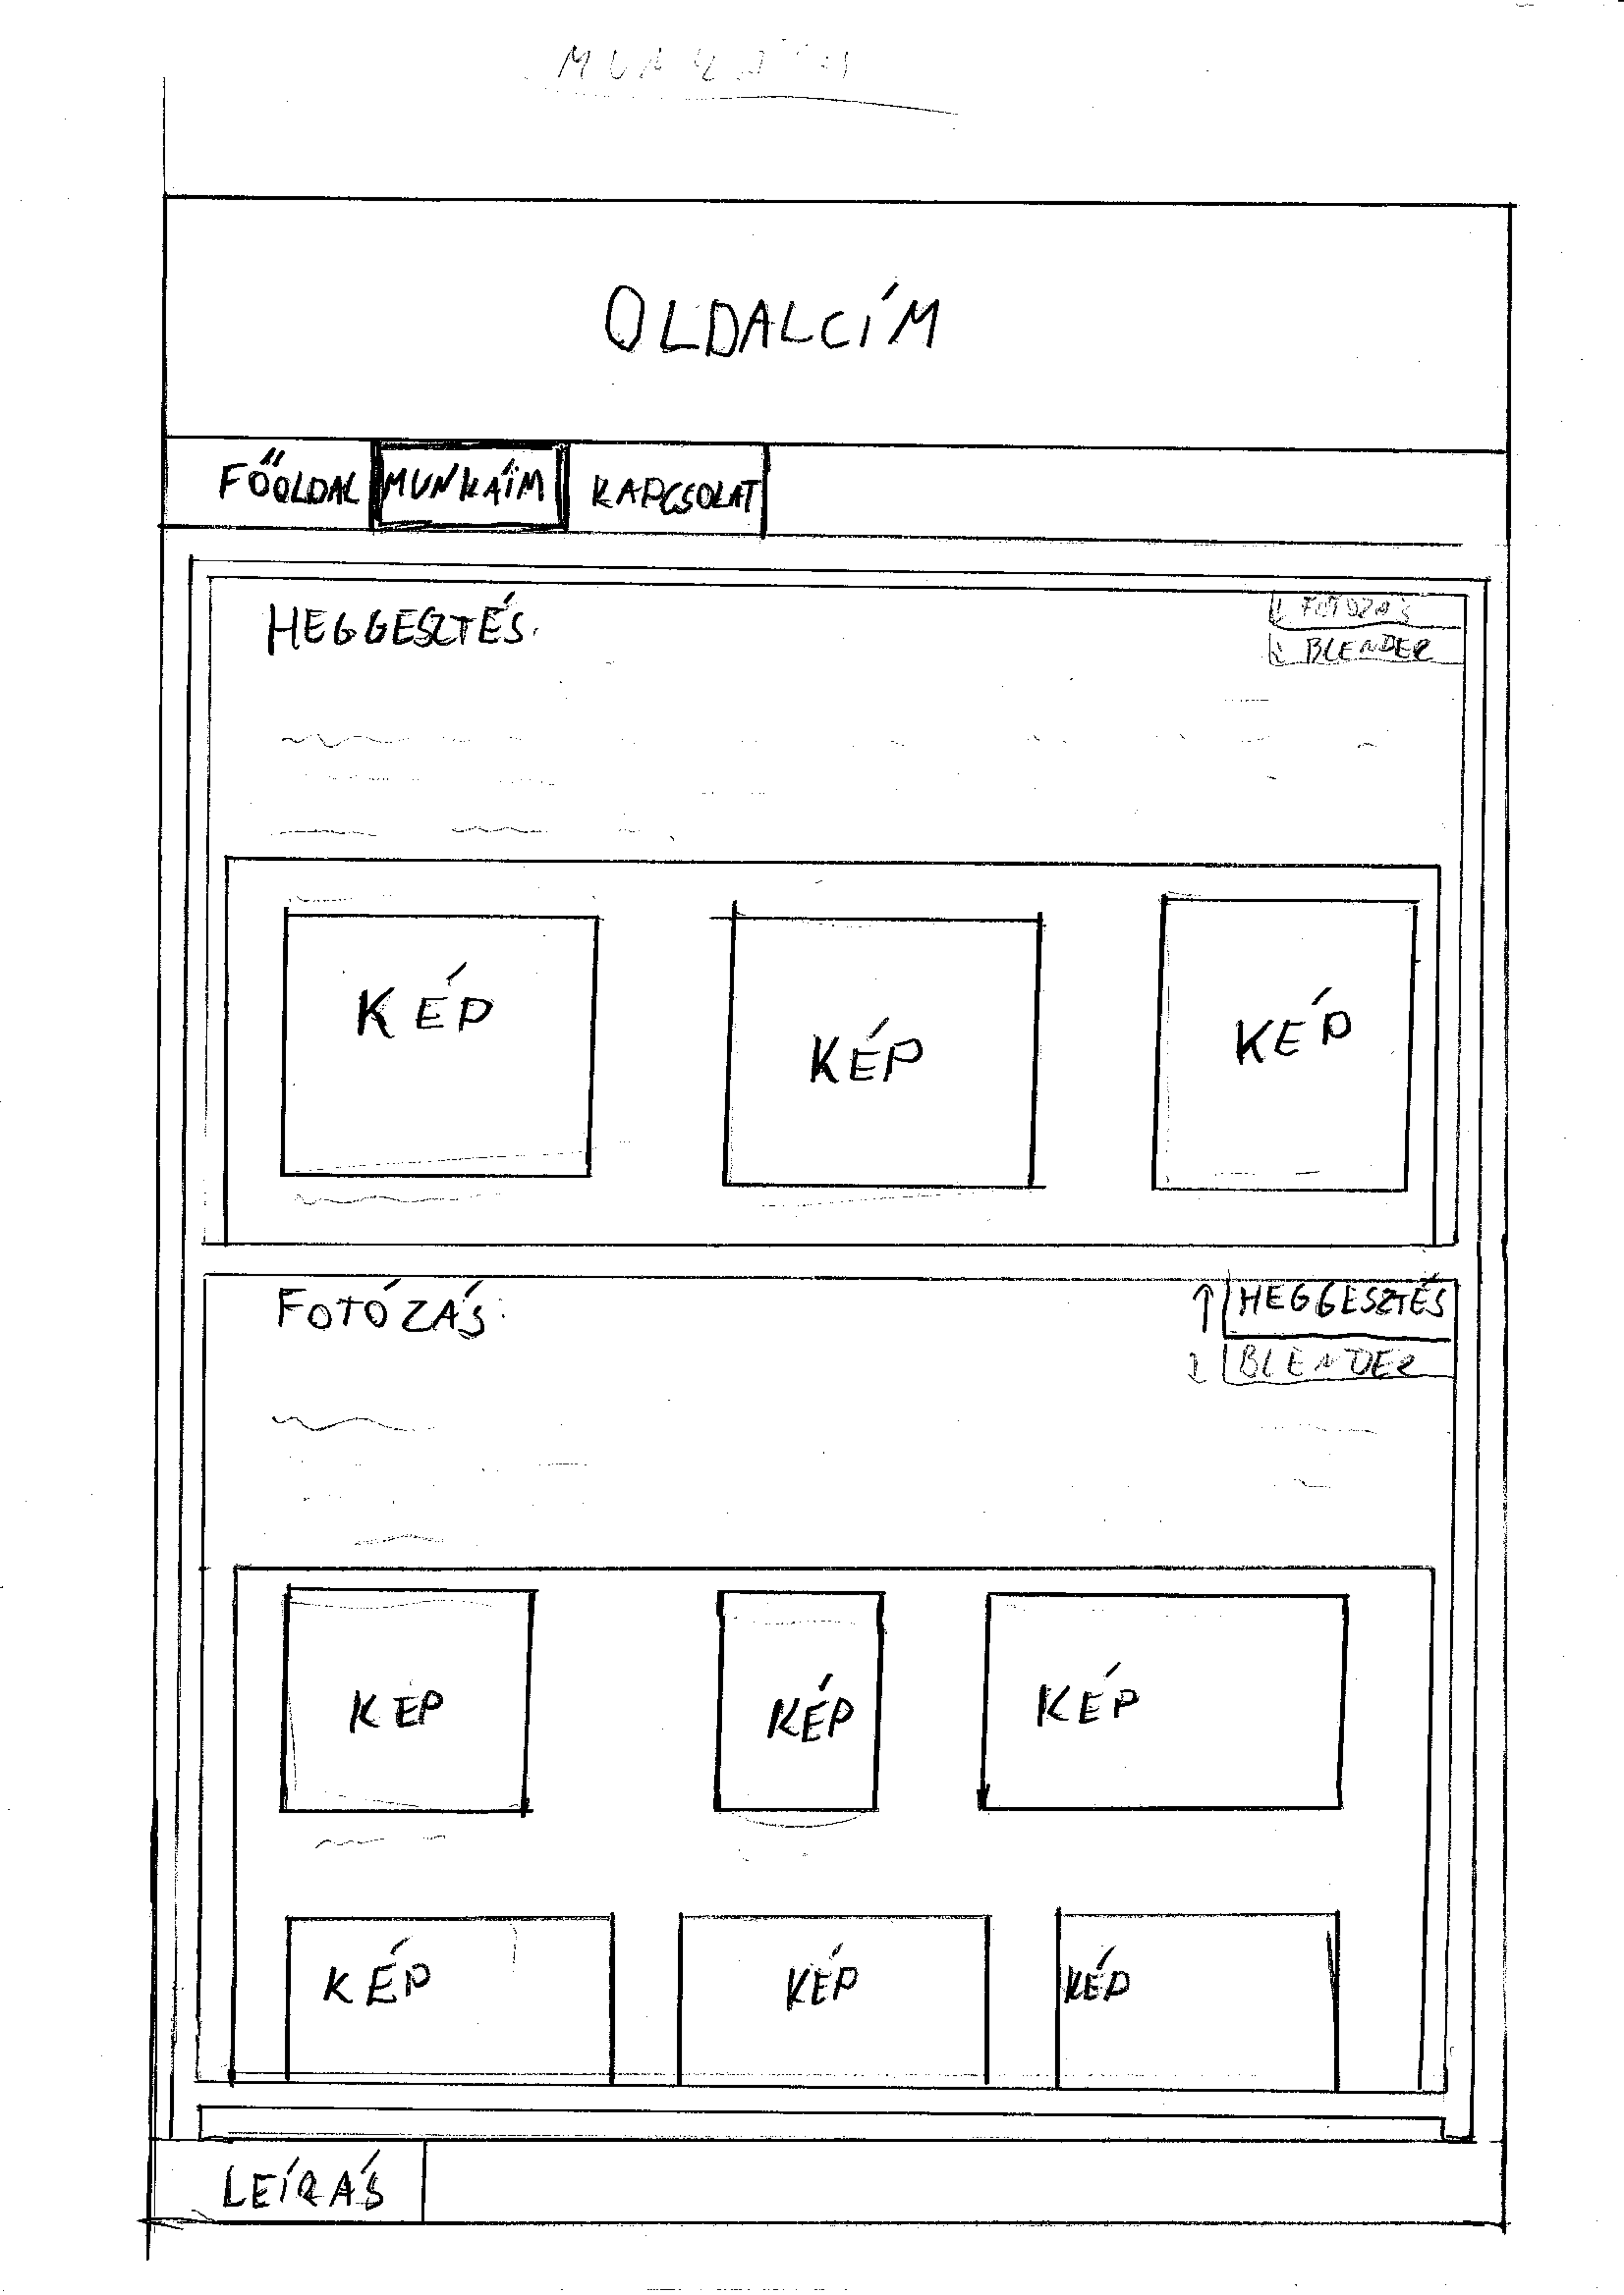 OLDALCÍM
FŐOLDAL MUNKÁIM KAPCSOLAT
HEGGESZTÉS.
↓ FOTÓZÁS
↓ BLENDER
KÉP KÉP KÉP
FOTÓZÁS:
↑ HEGGESZTÉS
↓ BLENDER
KÉP KÉP KÉP
KÉP KÉP KÉP
LEÍRÁS